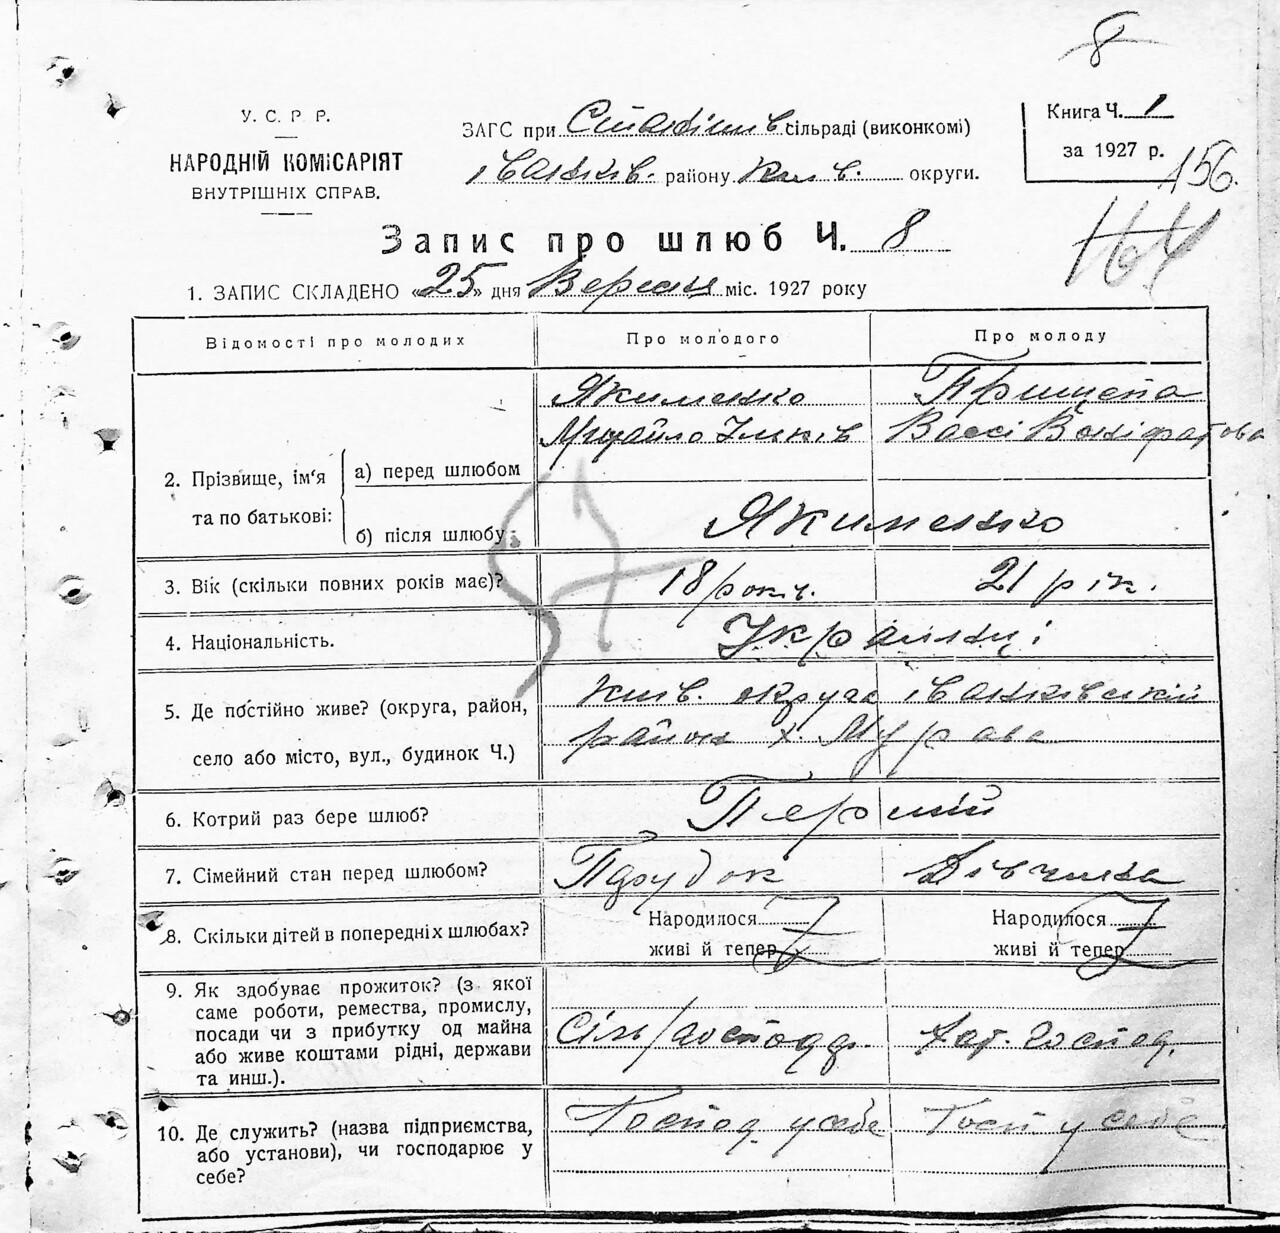 8
У. С. Р Р.
НАРОДНІЙ КОМІСАРІЯТ
ВНУТРІШНІХ СПРАВ.
ЗАГС при сільраді (виконкомі)
Іванків. району Київ. округи.
Книга Ч. 1
за 1927 р.
156.
164
Запис про шлюб Ч. 8
1. ЗАПИС СКЛАДЕНО «25» дня Вересня міс. 1927 року
Відомості про молодих Про молодого Про молоду
Якименко Прищепа
Михайло Ільків Васси Воніфатова
2. Прізвище, ім'я та по батькові: а) перед шлюбом
б) після шлюбу Якименко
3. Вік (скільки повних років має)? 18 років. 21 рік.
4. Національність. Українці
5. Де постійно живе? (округа, район, Київ. округа Іванківський
село або місто, вул., будинок Ч.) район х. Мурава
6. Котрий раз бере шлюб? Перший
7. Сімейний стан перед шлюбом? Парубок Дівчина
8. Скільки дітей в попередніх шлюбах? Народилося Народилося
живі й тепер живі й тепер
9. Як здобуває прожиток? (з якої
саме роботи, ремества, промислу,
посади чи з прибутку од майна
або живе коштами рідні, держави
та инш.).
Сіль/господар. господ.
10. Де служить? (назва підприємства,
або установи), чи господарює у
себе?
Господ. у себе Госп у себе